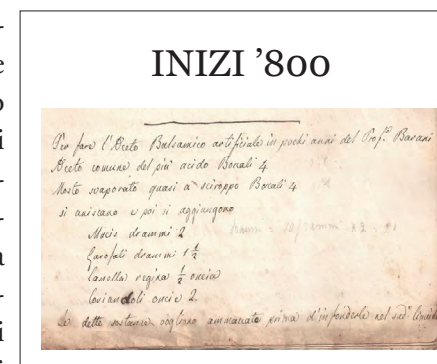 INIZI '800
Per fare l'Aceto Balsamico artificiale in pochi anni del Prof.e Barani
Aceto comune del più acido Bocali 4
Mosto svaporato quasi a sciroppo Bocali 4
si uniscano e poi si aggiungono
Macis drammi 2
Garofali drammi 1 1/2
Canella regina 1/2 oncia
Coriandoli oncie 2.
Le dette sostanze vogliono ammaccate prima d'infonderle nel sud.o